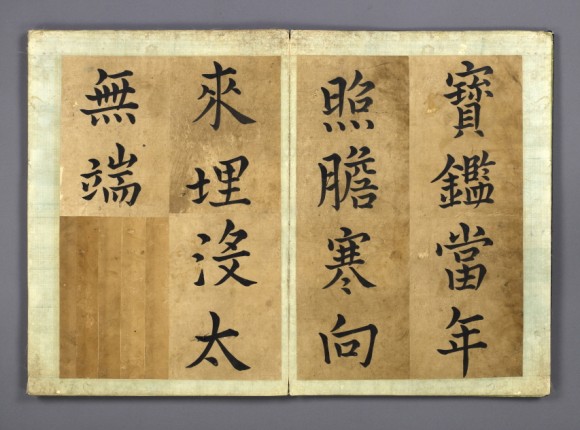 寶鑑當年
照膽寒向
來埋沒太
無端